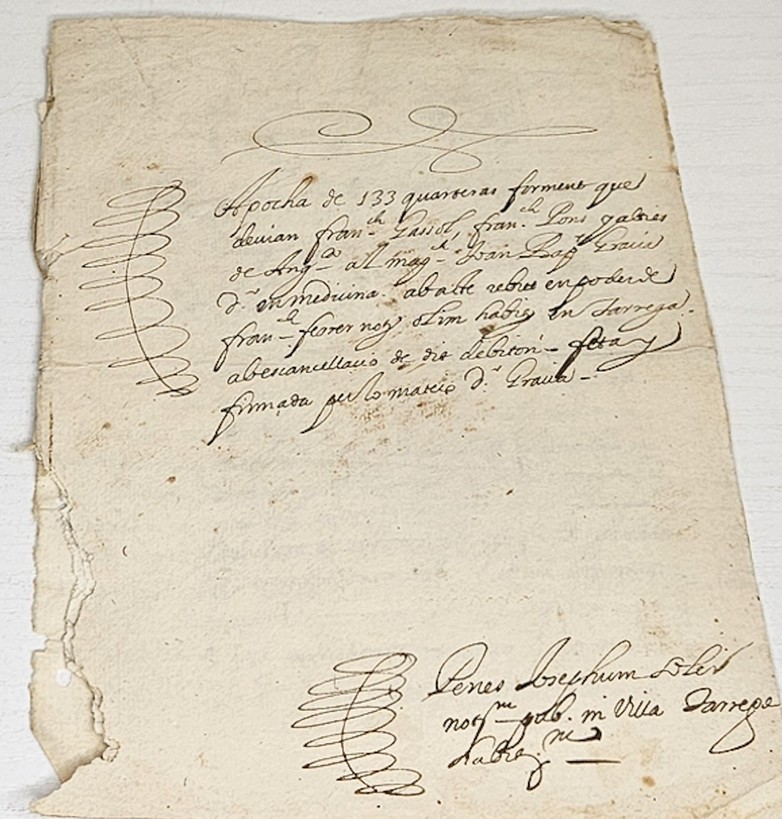 Apocha de 133 quarteras forment que
devian fran.ch Gassol, fran.ch Pons y altres
de Ang.ª all mag.ch Joan Bap.ta Gravia
D.r en medicina ab acte rebut en poder de
fran.ch ferrer not.y olim habi.t en Tarrega
ab escancellacio de dit debitori feta y
firmada per lo mateix D.r Gravia
Penes Josephum Soler
not.m pub. in Villa Tarrege